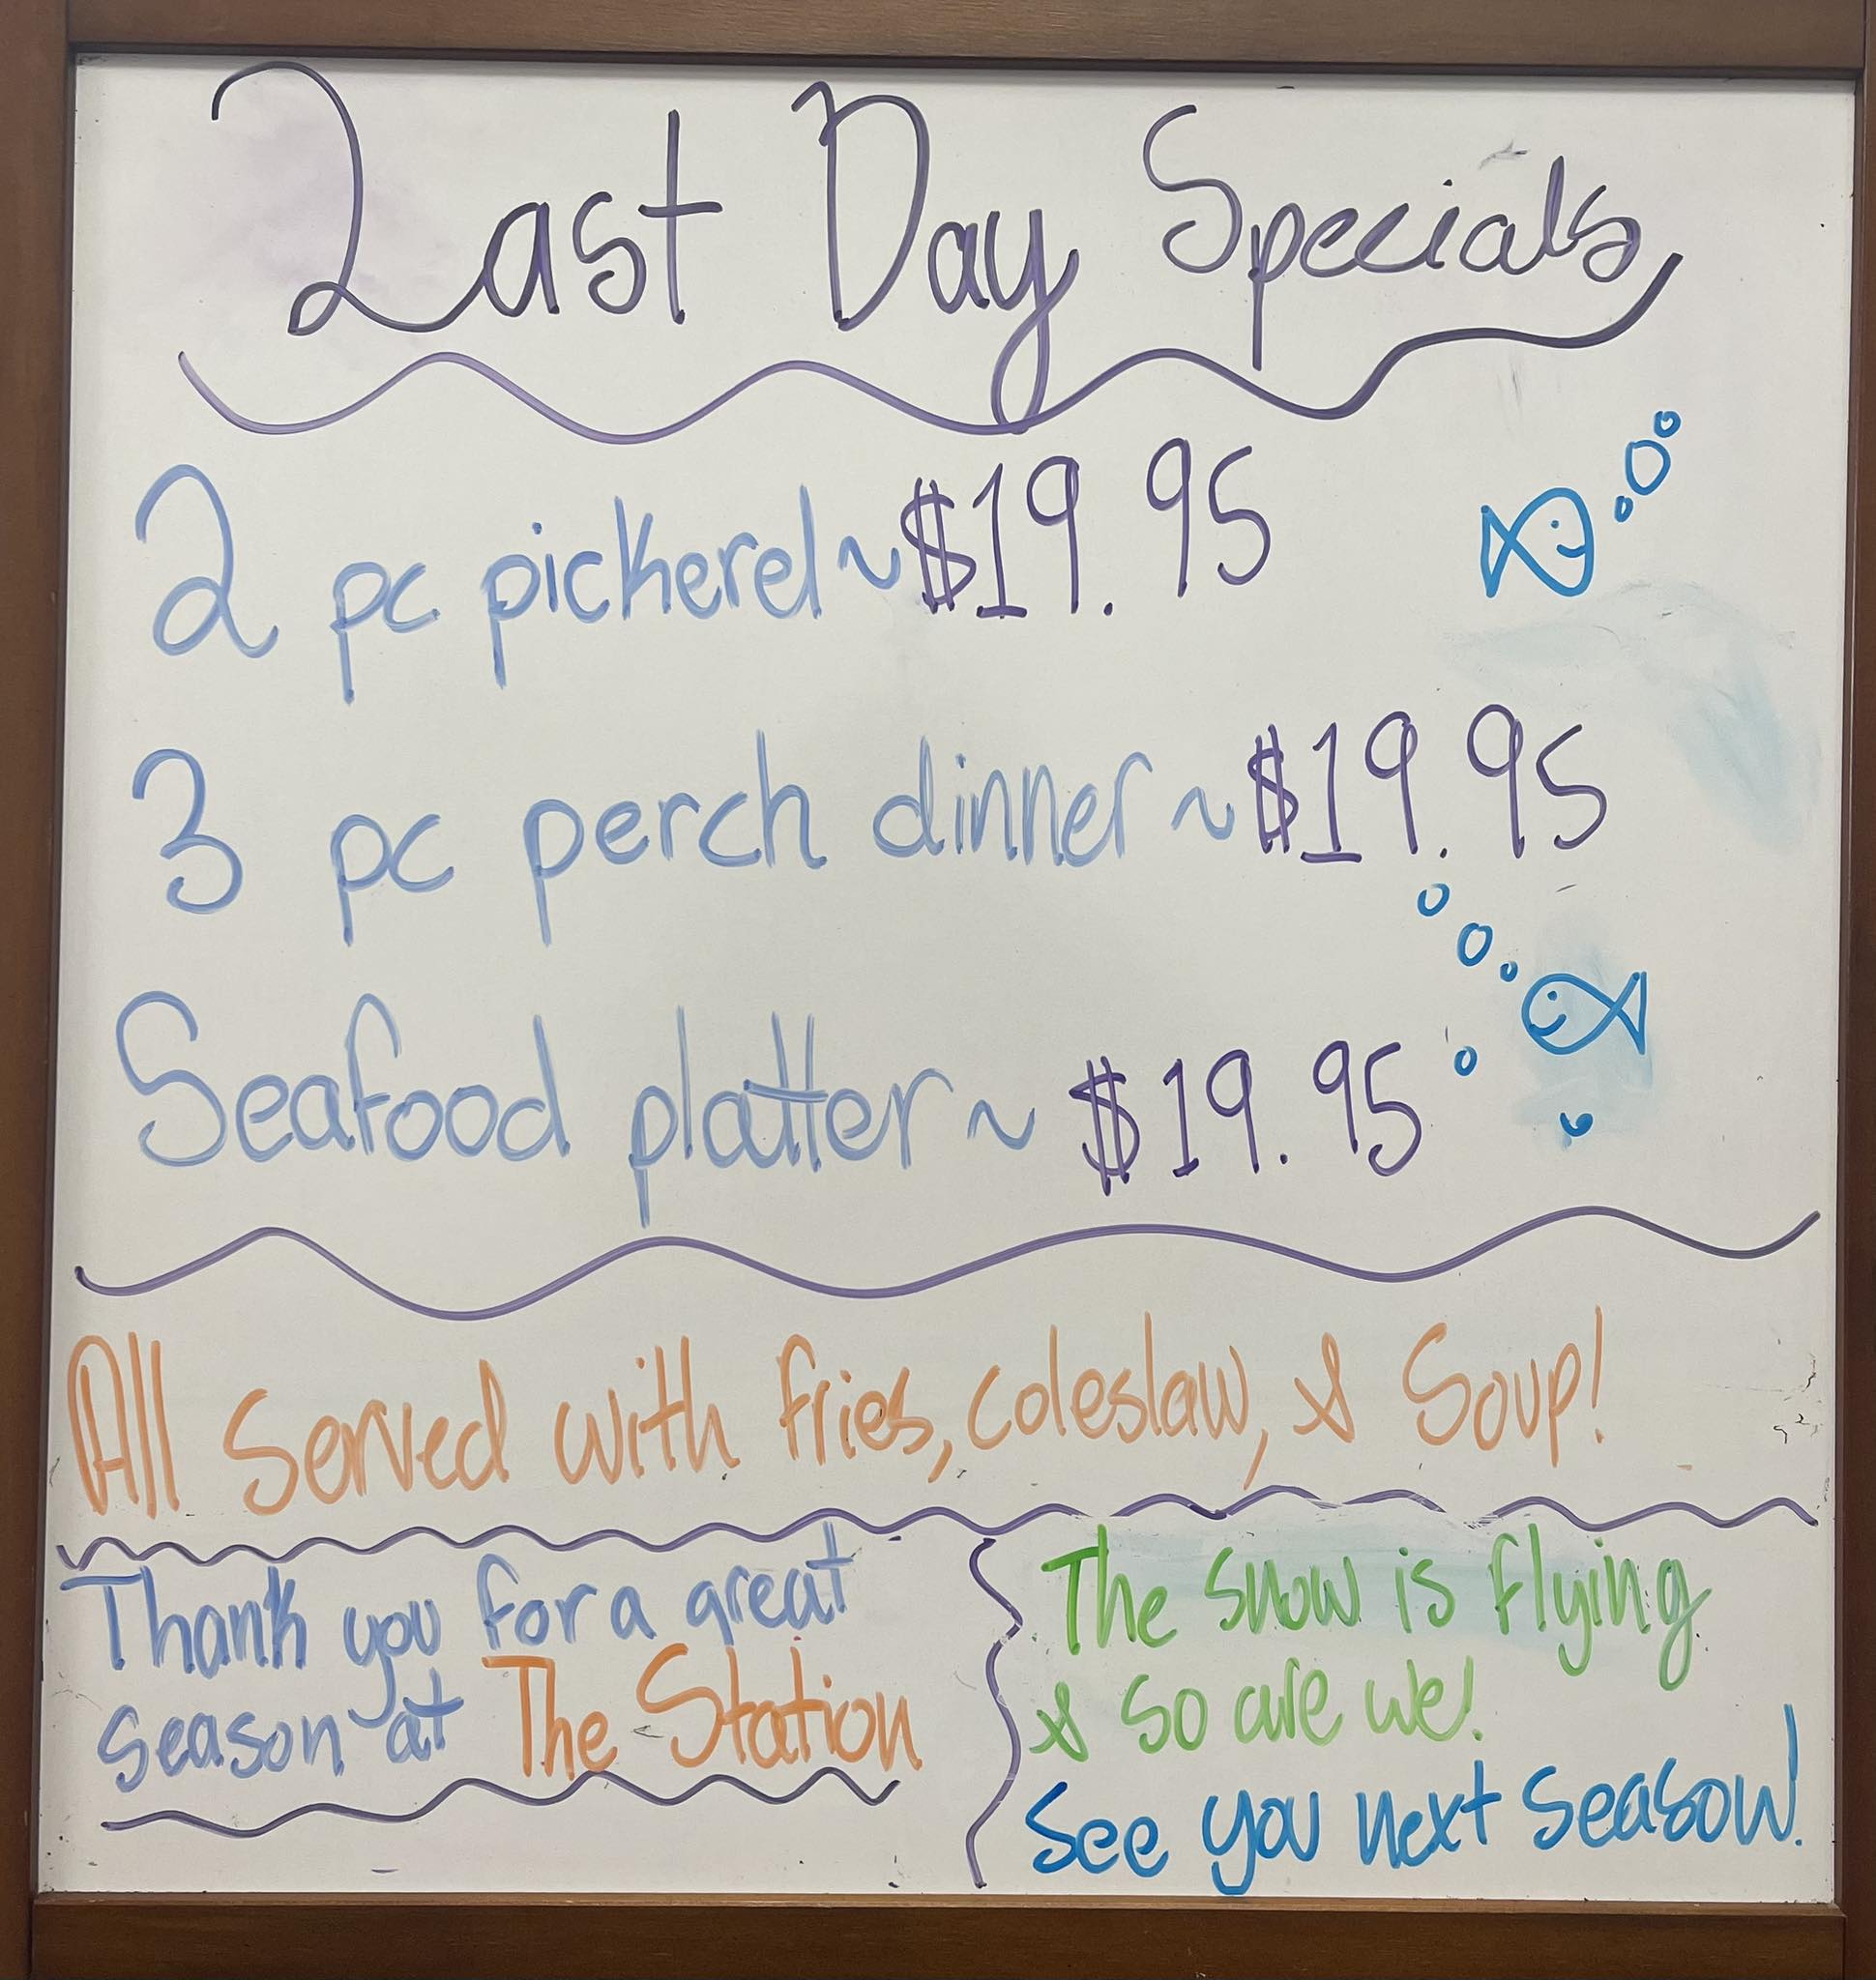 Last Day Specials
2 pc pickerel ~ $19.95
3 pc perch dinner ~ $19.95
Seafood platter ~ $19.95
All Served with fries, coleslaw, & Soup!
Thank you for a great
season at The Station
The Snow is flying
& So are we!
See you next season!